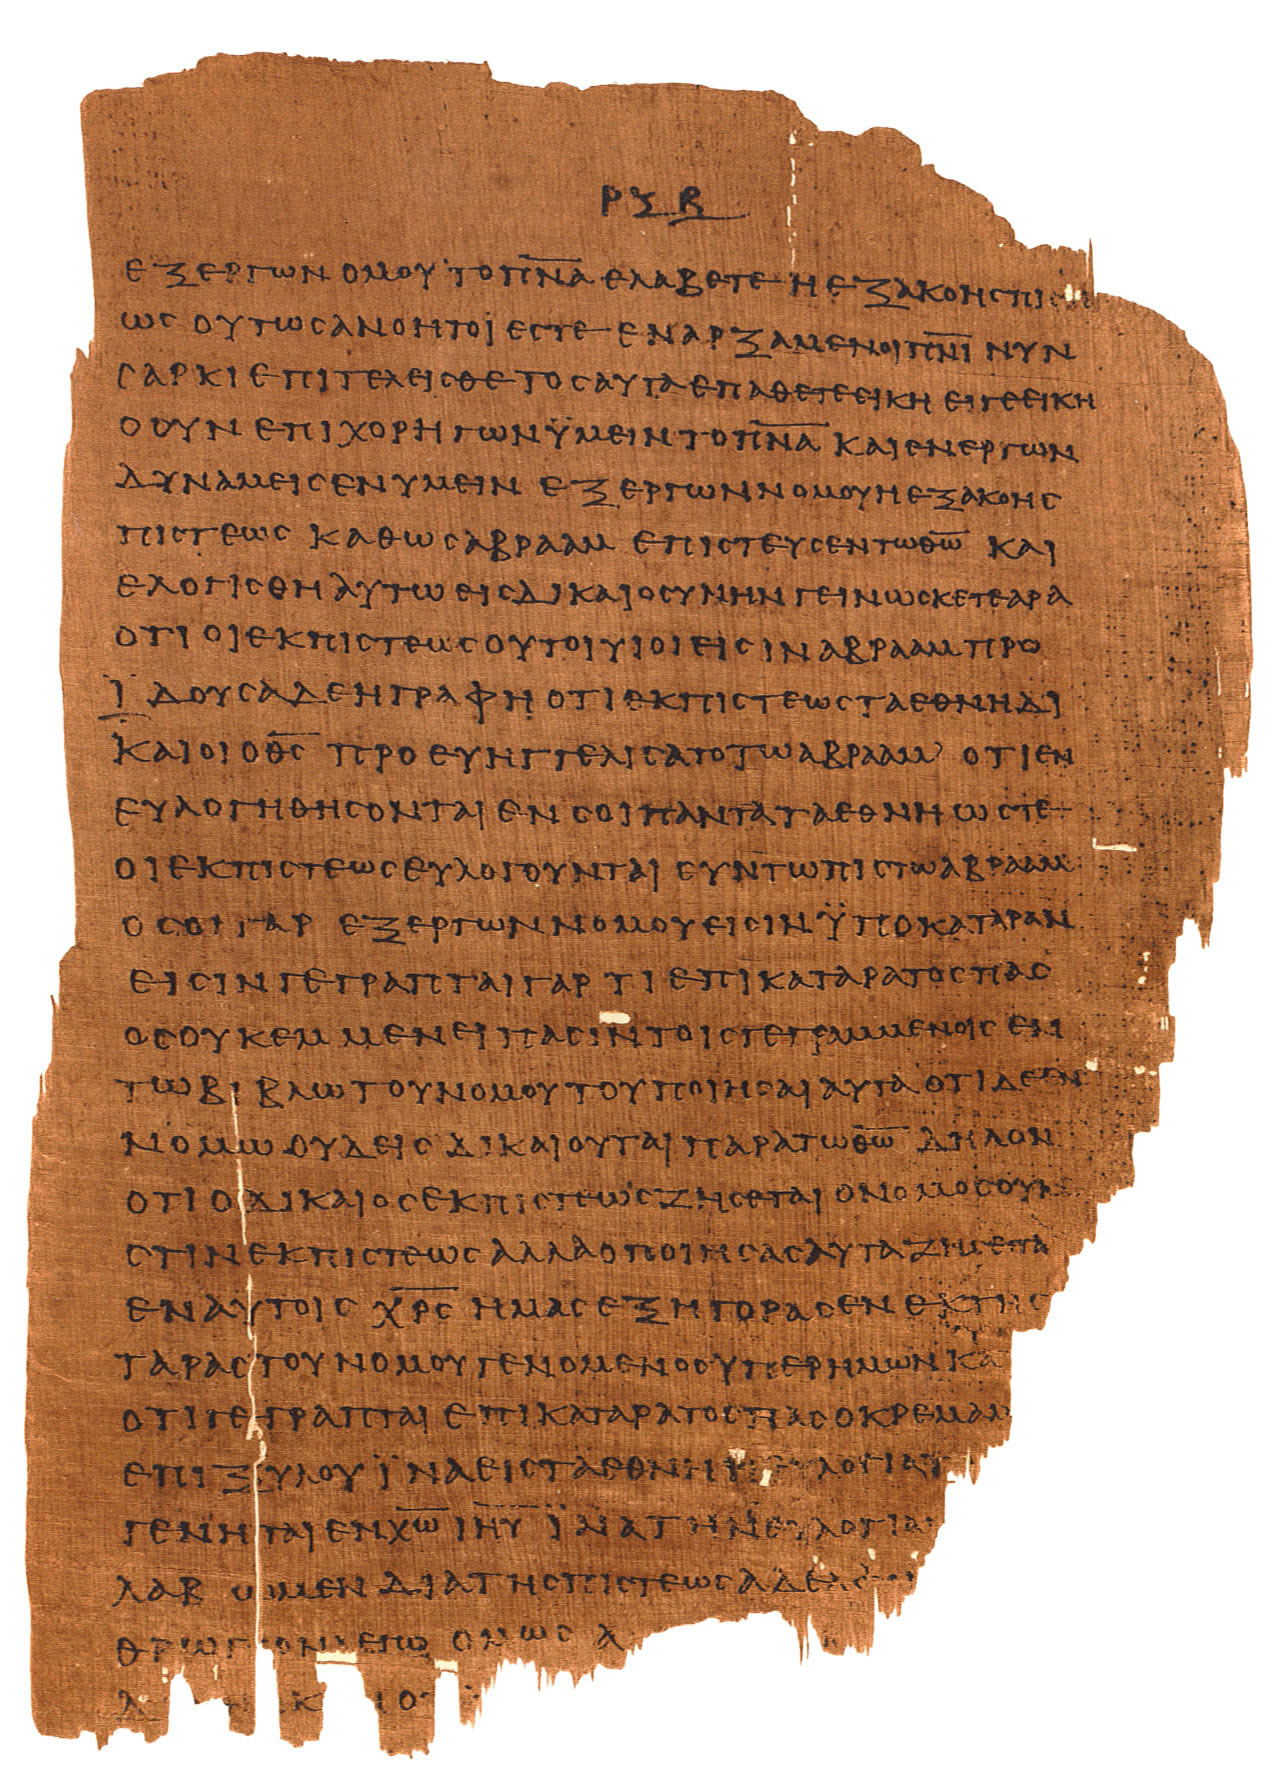 ΡΞΒ
ΕΞ ΕΡΓΩΝ ΟΜΟΥ ΤΟ Π̅Ν̅Α̅ ΕΛΑΒΕΤΕ Η ΕΞ ΑΚΟΗΣ
ΩΣ ΟΥΤΩΣ ΑΝΟΗΤΟΙ ΕΣΤΕ ΕΝΑΡΞΑΜΕΝΟΙ Π̅Ν̅Ι̅ ΝΥΝ
ΣΑΡΚΙ ΕΠΙΤΕΛΕΙΣΘΕ ΤΟΣΑΥΤΑ ΕΠΑΘΕΤΕ ΕΙΚΗ ΕΙ ΓΕ ΕΙΚΗ
Ο ΟΥΝ ΕΠΙΧΟΡΗΓΩΝ ΫΜΕΙΝ ΤΟ Π̅Ν̅Α̅ ΚΑΙ ΕΝΕΡΓΩΝ
ΔΥΝΑΜΕΙΣ ΕΝ ΥΜΕΙΝ ΕΞ ΕΡΓΩΝ ΝΟΜΟΥ Η ΕΞ ΑΚΟΗΣ
ΠΙΣΤΕΩΣ ΚΑΘΩΣ ΑΒΡΑΑΜ ΕΠΙΣΤΕΥΣΕΝ ΤΩ Θ̅Ω̅ ΚΑΙ
ΕΛΟΓΙΣΘΗ ΑΥΤΩ ΕΙΣ ΔΙΚΑΙΟΣΥΝΗΝ ΓΕΙΝΩΣΚΕΤΕ ΑΡΑ
ΟΤΙ ΟΙ ΕΚ ΠΙΣΤΕΩΣ ΟΥΤΟΙ ΥΙΟΙ ΕΙΣΙΝ ΑΒΡΑΑΜ ΠΡΟ
ΪΔΟΥΣΑ ΔΕ Η ΓΡΑΦΗ ΟΤΙ ΕΚ ΠΙΣΤΕΩΣ ΤΑ ΕΘΝΗ ΔΙ
ΚΑΙΟΙ Ο Θ̅Σ̅ ΠΡΟΕΥΗΓΓΕΛΙΣΑΤΟ ΤΩ ΑΒΡΑΑΜ ΟΤΙ ΕΝ
ΕΥΛΟΓΗΘΗΣΟΝΤΑΙ ΕΝ ΣΟΙ ΠΑΝΤΑ ΤΑ ΕΘΝΗ ΩΣΤΕ
ΟΙ ΕΚ ΠΙΣΤΕΩΣ ΕΥΛΟΓΟΥΝΤΑΙ ΣΥΝ ΤΩ ΠΙΣΤΩ ΑΒΡΑΑΜ
ΟΣΟΙ ΓΑΡ ΕΞ ΕΡΓΩΝ ΝΟΜΟΥ ΕΙΣΙΝ ΫΠΟ ΚΑΤΑΡΑΝ
ΕΙΣΙΝ ΓΕΓΡΑΠΤΑΙ ΓΑΡ ΤΙ ΕΠΙΚΑΤΑΡΑΤΟΣ ΠΑΣ
ΟΣ ΟΥΚ ΕΜΜΕΝΕΙ ΠΑΣΙΝ ΤΟΙΣ ΓΕΓΡΑΜΜΕΝΟΙΣ ΕΝ
ΤΩ ΒΙΒΛΩ ΤΟΥ ΝΟΜΟΥ ΤΟΥ ΠΟΙΗΣΑΙ ΑΥΤΑ ΟΤΙ ΔΕ ΕΝ
ΝΟΜΩ ΟΥΔΕΙΣ ΔΙΚΑΙΟΥΤΑΙ ΠΑΡΑ ΤΩ Θ̅Ω̅ ΔΗΛΟΝ
ΟΤΙ Ο ΔΙΚΑΙΟΣ ΕΚ ΠΙΣΤΕΩΣ ΖΗΣΕΤΑΙ Ο ΝΟΜΟΣ ΟΥΚ
ΣΤΙΝ ΕΚ ΠΙΣΤΕΩΣ ΑΛΛΑ Ο ΠΟΙΗΣΑΣ ΑΥΤΑ ΖΗΣΕΤΑ
ΕΝ ΑΥΤΟΙΣ Χ̅Ρ̅Σ̅ ΗΜΑΣ ΕΞΗΓΟΡΑΣΕΝ ΕΚ ΤΗΣ
ΤΑΡΑΣ ΤΟΥ ΝΟΜΟΥ ΓΕΝΟΜΕΝΟΣ ΥΠΕΡ ΗΜΩΝ ΚΑ
ΟΤΙ ΓΕΓΡΑΠΤΑΙ ΕΠΙΚΑΤΑΡΑΤΟΣ ΠΑΣ Ο ΚΡΕΜΑΜ
ΕΠΙ ΞΥΛΟΥ ΪΝΑ ΕΙΣ ΤΑ ΕΘΝΗ Η ΕΥΛΟΓΙΑ Τ
ΓΕΝΗΤΑΙ ΕΝ Χ̅Ω̅ Ι̅Η̅Υ̅ ΪΝΑ ΤΗΝ ΕΥΛΟΓΙΑΝ
ΛΑΒΩΜΕΝ ΔΙΑ ΤΗΣ ΠΙΣΤΕΩΣ ΑΔΕΛΦΟΙ
ΘΡΩΠΟΝ ΛΕΓΩ ΟΜΩΣ Α